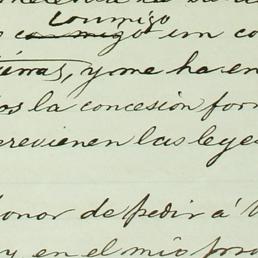 conmigo
im co
tierras, y me ha en
os la concesión for
previenen las leye
honor de pedir á V
y en el mio pro